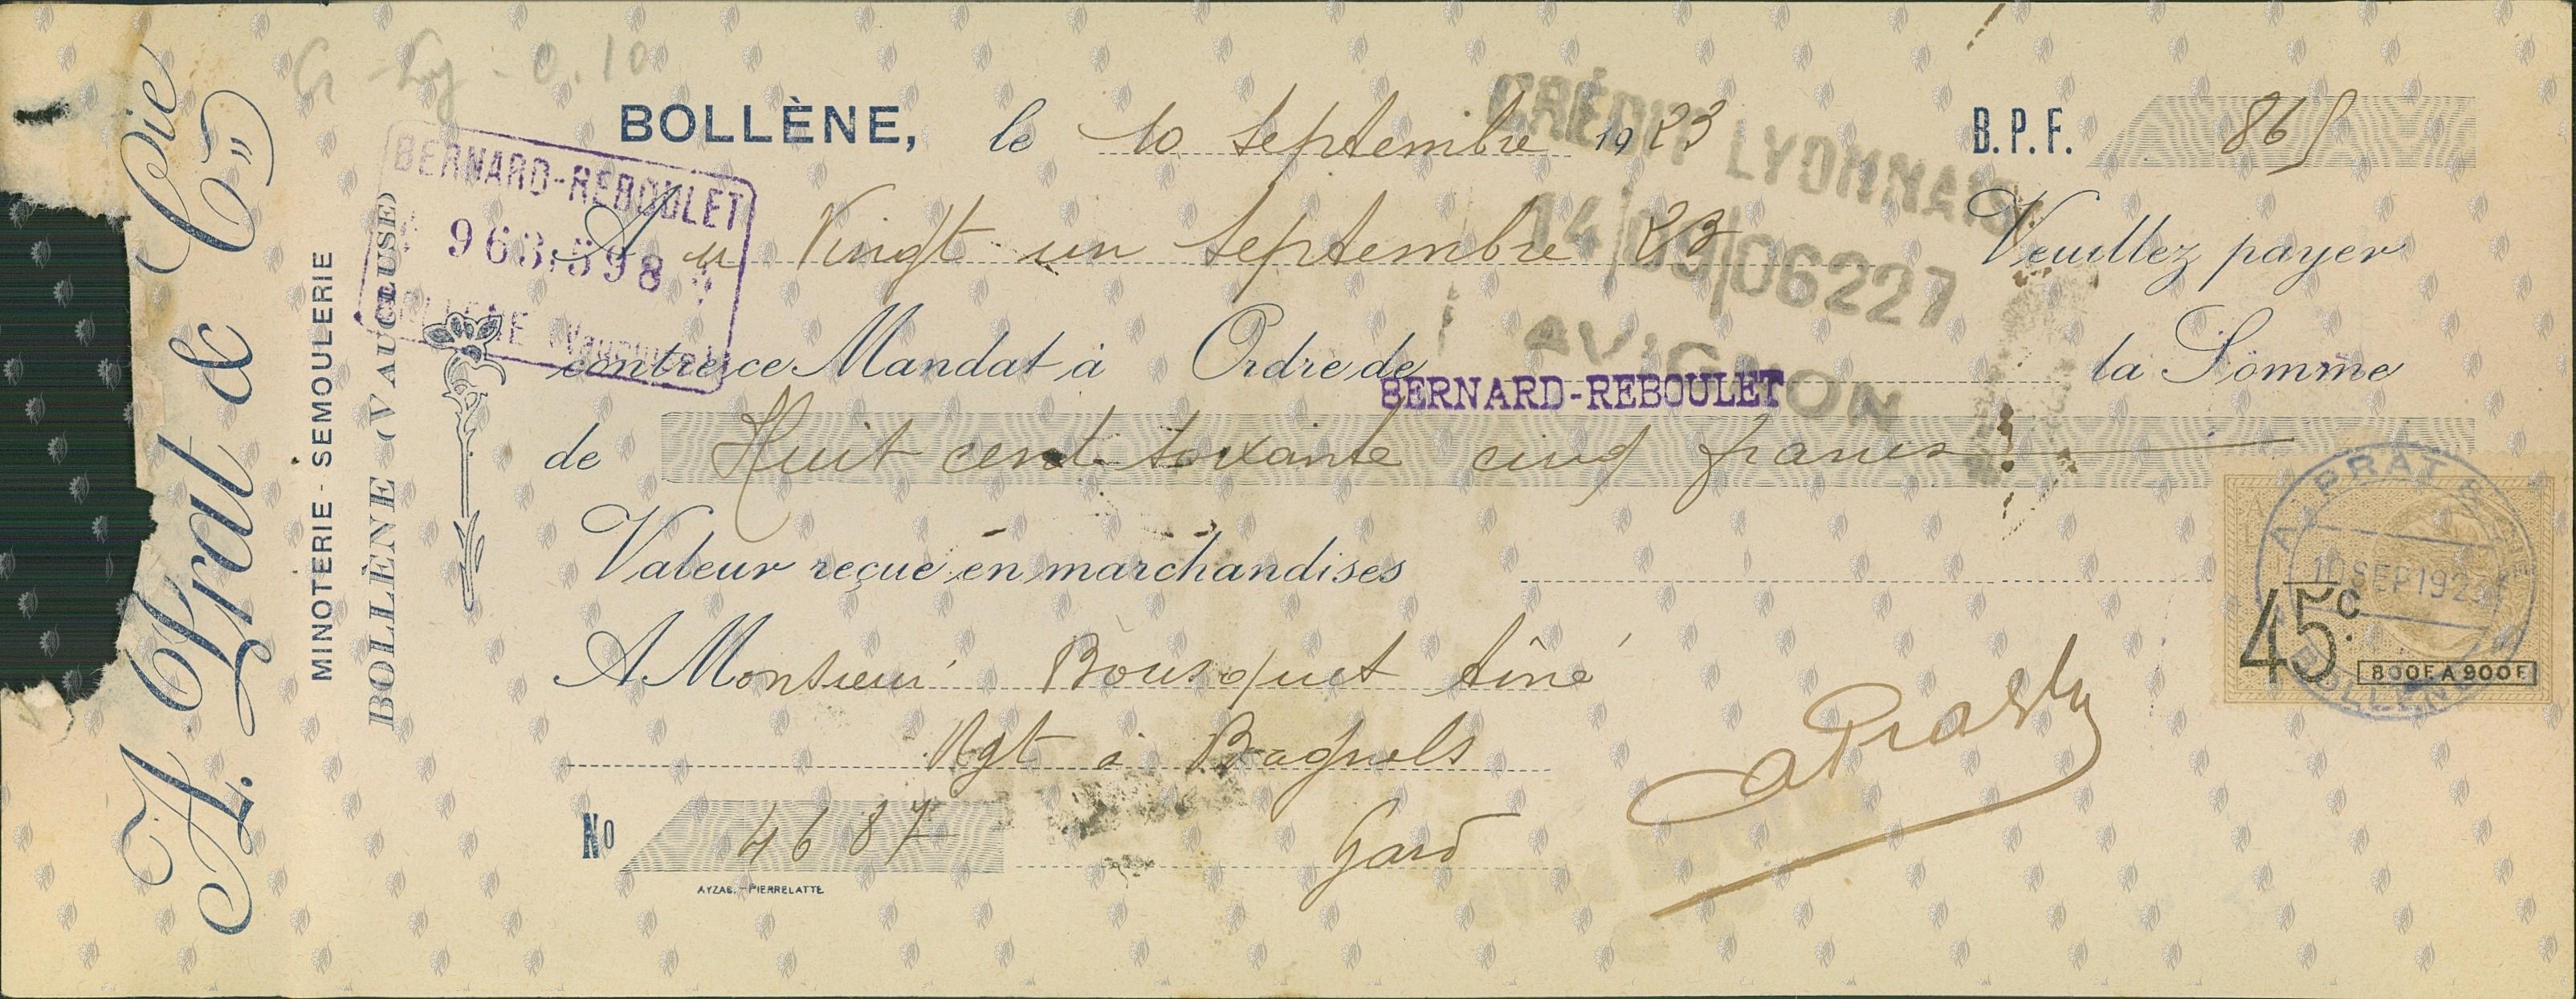 A. Prat & Cie
MINOTERIE - SEMOULERIE
BOLLÈNE (VAUCLUSE)
BERNARD-REBOULET
963,598
BOLLÈNE, le 10 Septembre 1923 B.P.F. 865
CRÉDIT LYONNAIS
14/09/06227
AVIGNON
Au Vingt un Septembre 23 Veuillez payer
contre ce Mandat à Ordre de BERNARD-REBOULET la Somme
de Huit cent soixante cinq francs
Valeur reçue en marchandises
A Monsieur Bousquet Aîné
Ngt à Bagnols
Gard
No 4687
AYZAC. - PIERRELATTE
A. PRAT & CIE
10 SEP 1923
BOLLÈNE
45c
800F A 900F